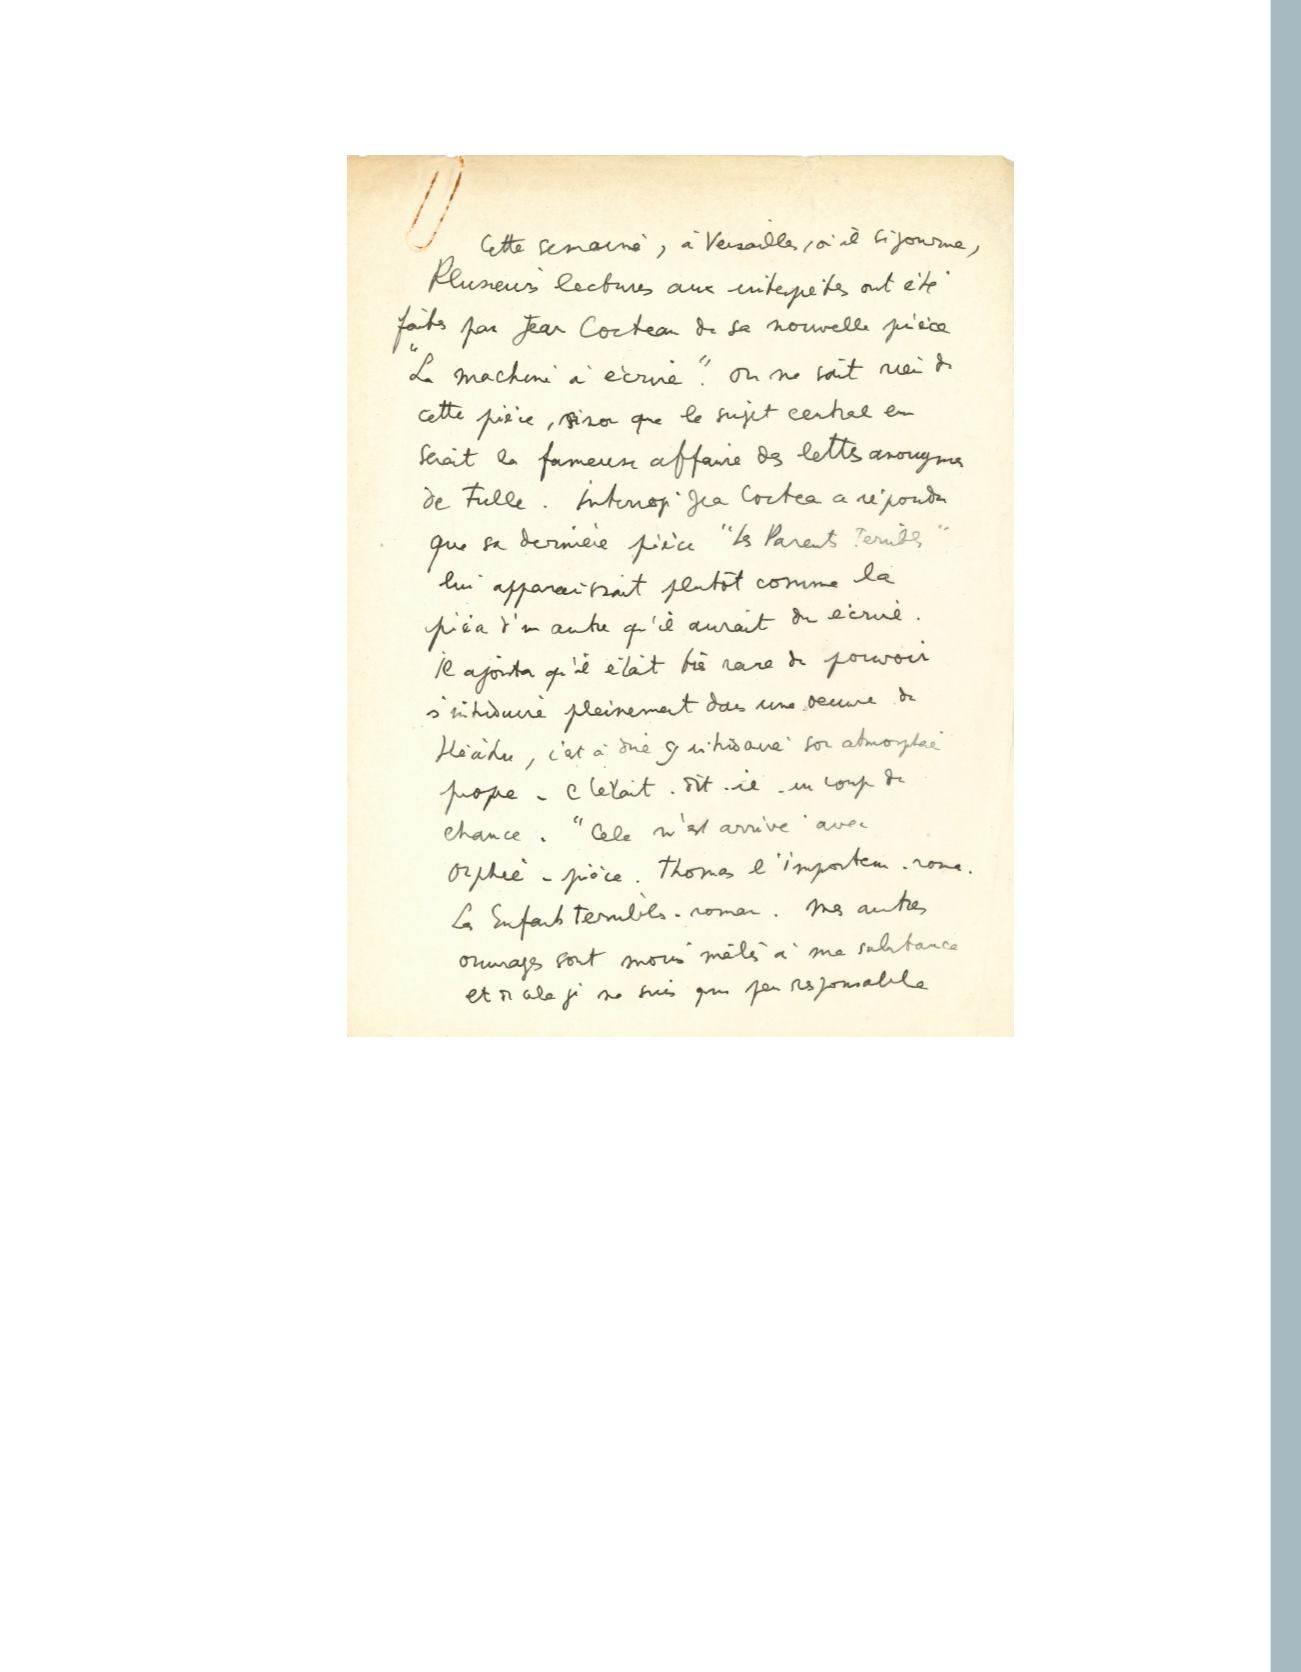 Cette semaine, à Versailles, où il séjourne,
Plusieurs lectures aux interprètes ont été
faites par Jean Cocteau de sa nouvelle pièce
"La machine à écrire". On ne sait rien de
cette pièce, sinon que le sujet central en
serait la fameuse affaire des lettres anonymes
de Tulle. Interrogé Jean Cocteau a répondu
que sa dernière pièce "Les Parents Terribles"
lui apparaissait plutôt comme la
pièce d'un autre qu'il aurait du écrire.
Il ajouta qu'il était très rare de pouvoir
s'introduire pleinement dans une oeuvre de
théâtre, c'est à dire y introduire son atmosphère
propre - C'était - dit-il - un coup de
chance. "Cela m'est arrivé avec
Orphée - pièce. Thomas l'imposteur - roman.
Les Enfants Terribles - roman. Mes autres
ouvrages sont moins mêlés à ma substance
et de cela je ne suis que peu responsable